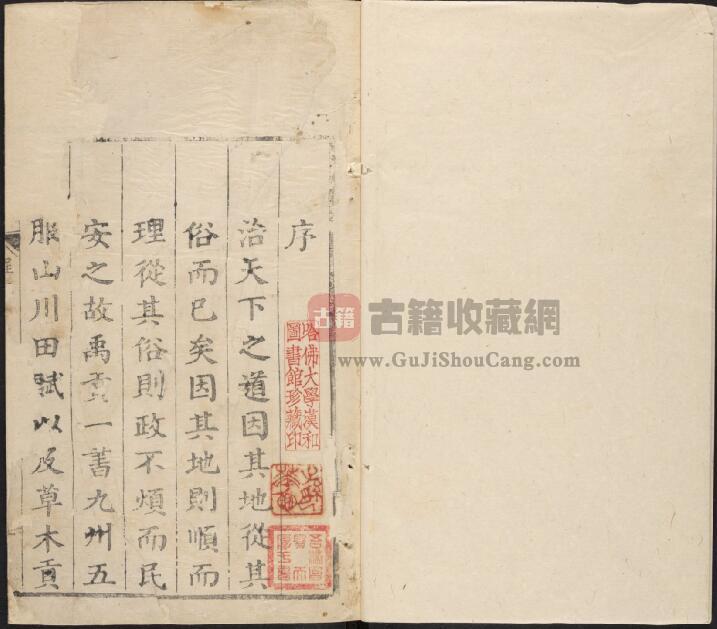 序
治天下之道因其地從其
俗而已矣因其地則順而
理從其俗則政不煩而民
安之故禹貢一書九州五
服山川田賦以及草木貢
哈佛大學漢和
圖書館珍藏印
古籍
古籍收藏網
www.GuJiShouCang.com